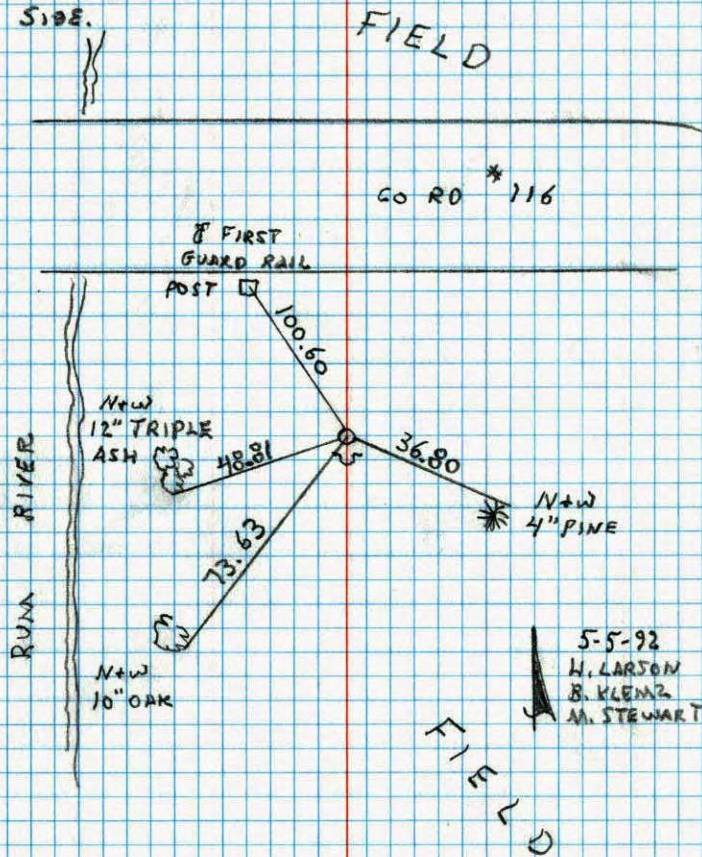 SIDE.
FIELD
CO RD # 116
℄ FIRST
GUARD RAIL
POST
100.60
N+W
12" TRIPLE
ASH
48.81
36.80
N+W
4" PINE
73.63
RUM RIVER
N+W
10" OAK
5-5-92
W. LARSON
B. KLEMZ
M. STEWART
FIELD